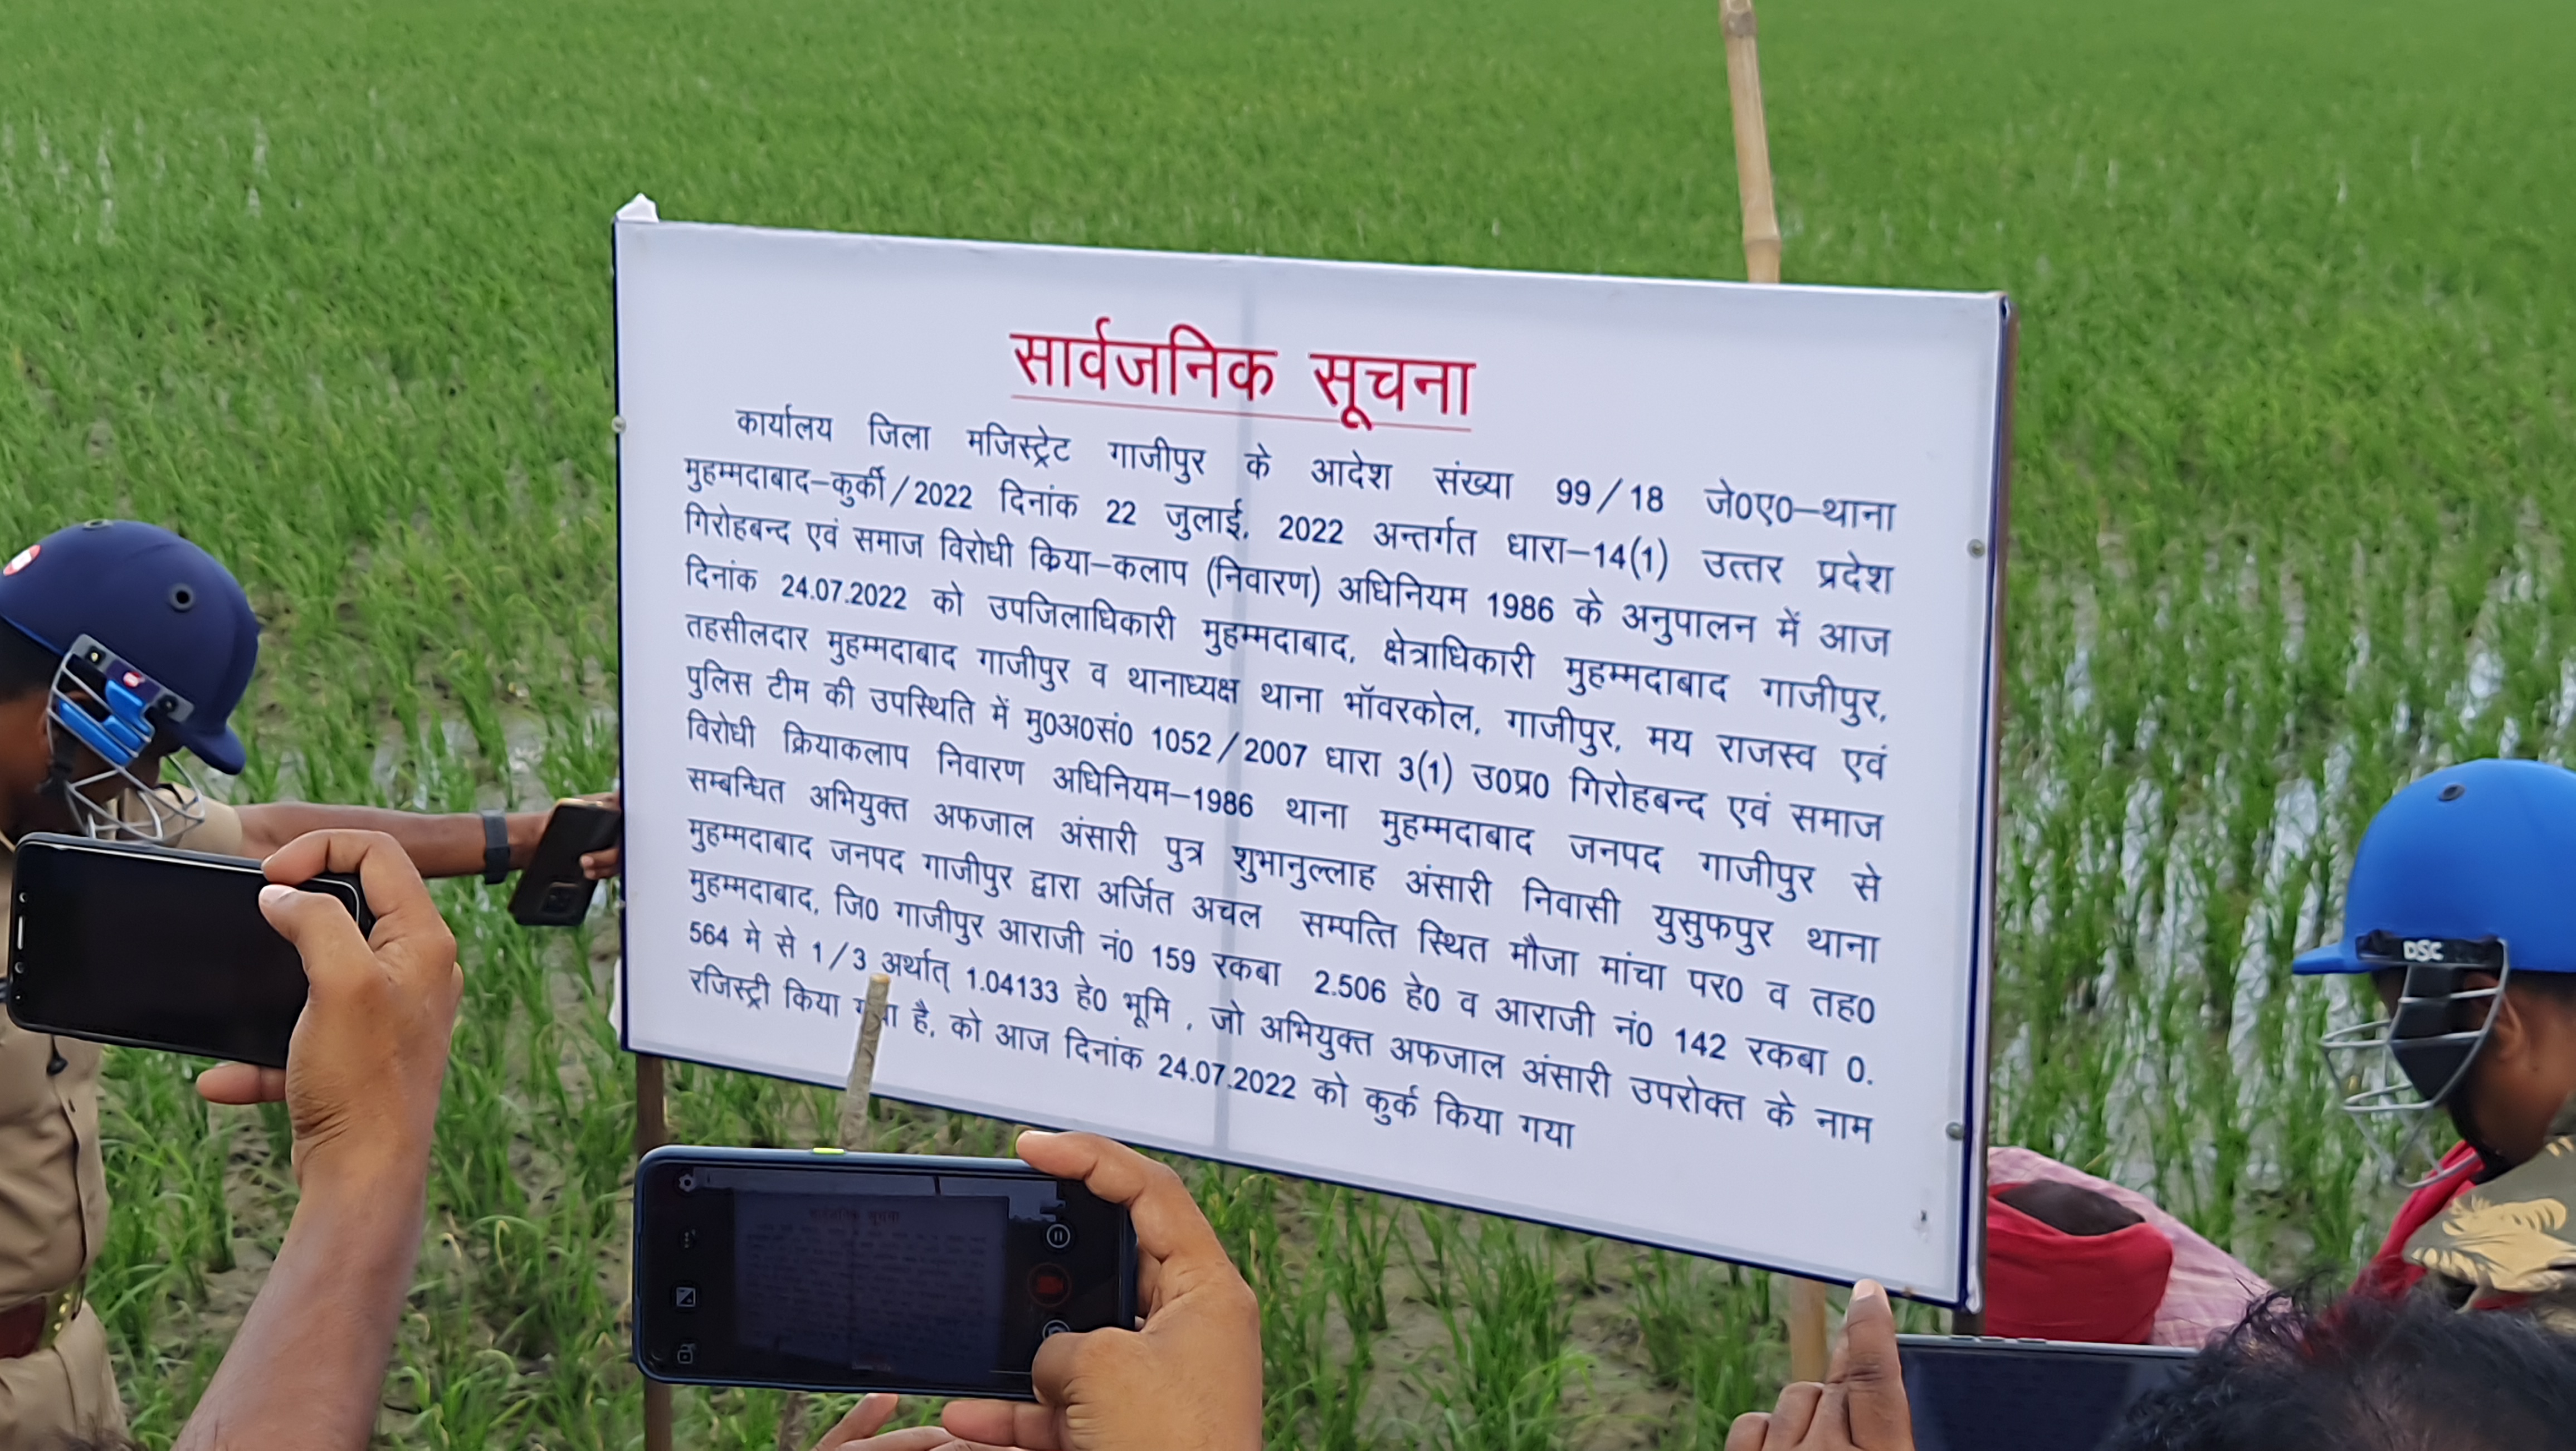 सार्वजनिक सूचना
कार्यालय जिला मजिस्ट्रेट गाजीपुर के आदेश संख्या 99/18 जे0ए0–थाना
मुहम्मदाबाद–कुर्की/2022 दिनांक 22 जुलाई, 2022 अन्तर्गत धारा–14(1) उत्तर प्रदेश
गिरोहबन्द एवं समाज विरोधी किया–कलाप (निवारण) अधिनियम 1986 के अनुपालन में आज
दिनांक 24.07.2022 को उपजिलाधिकारी मुहम्मदाबाद, क्षेत्राधिकारी मुहम्मदाबाद गाजीपुर,
तहसीलदार मुहम्मदाबाद गाजीपुर व थानाध्यक्ष थाना भॉवरकोल, गाजीपुर, मय राजस्व एवं
पुलिस टीम की उपस्थिति में मु0अ0सं0 1052/2007 धारा 3(1) उ0प्र0 गिरोहबन्द एवं समाज
विरोधी क्रियाकलाप निवारण अधिनियम–1986 थाना मुहम्मदाबाद जनपद गाजीपुर से
सम्बन्धित अभियुक्त अफजाल अंसारी पुत्र शुभानुल्लाह अंसारी निवासी युसुफपुर थाना
मुहम्मदाबाद जनपद गाजीपुर द्वारा अर्जित अचल सम्पत्ति स्थित मौजा मांचा पर0 व तह0
मुहम्मदाबाद, जि0 गाजीपुर आराजी नं0 159 रकबा 2.506 हे0 व आराजी नं0 142 रकबा 0.
564 मे से 1/3 अर्थात् 1.04133 हे0 भूमि , जो अभियुक्त अफजाल अंसारी उपरोक्त के नाम
रजिस्ट्री किया गया है, को आज दिनांक 24.07.2022 को कुर्क किया गया
DSC